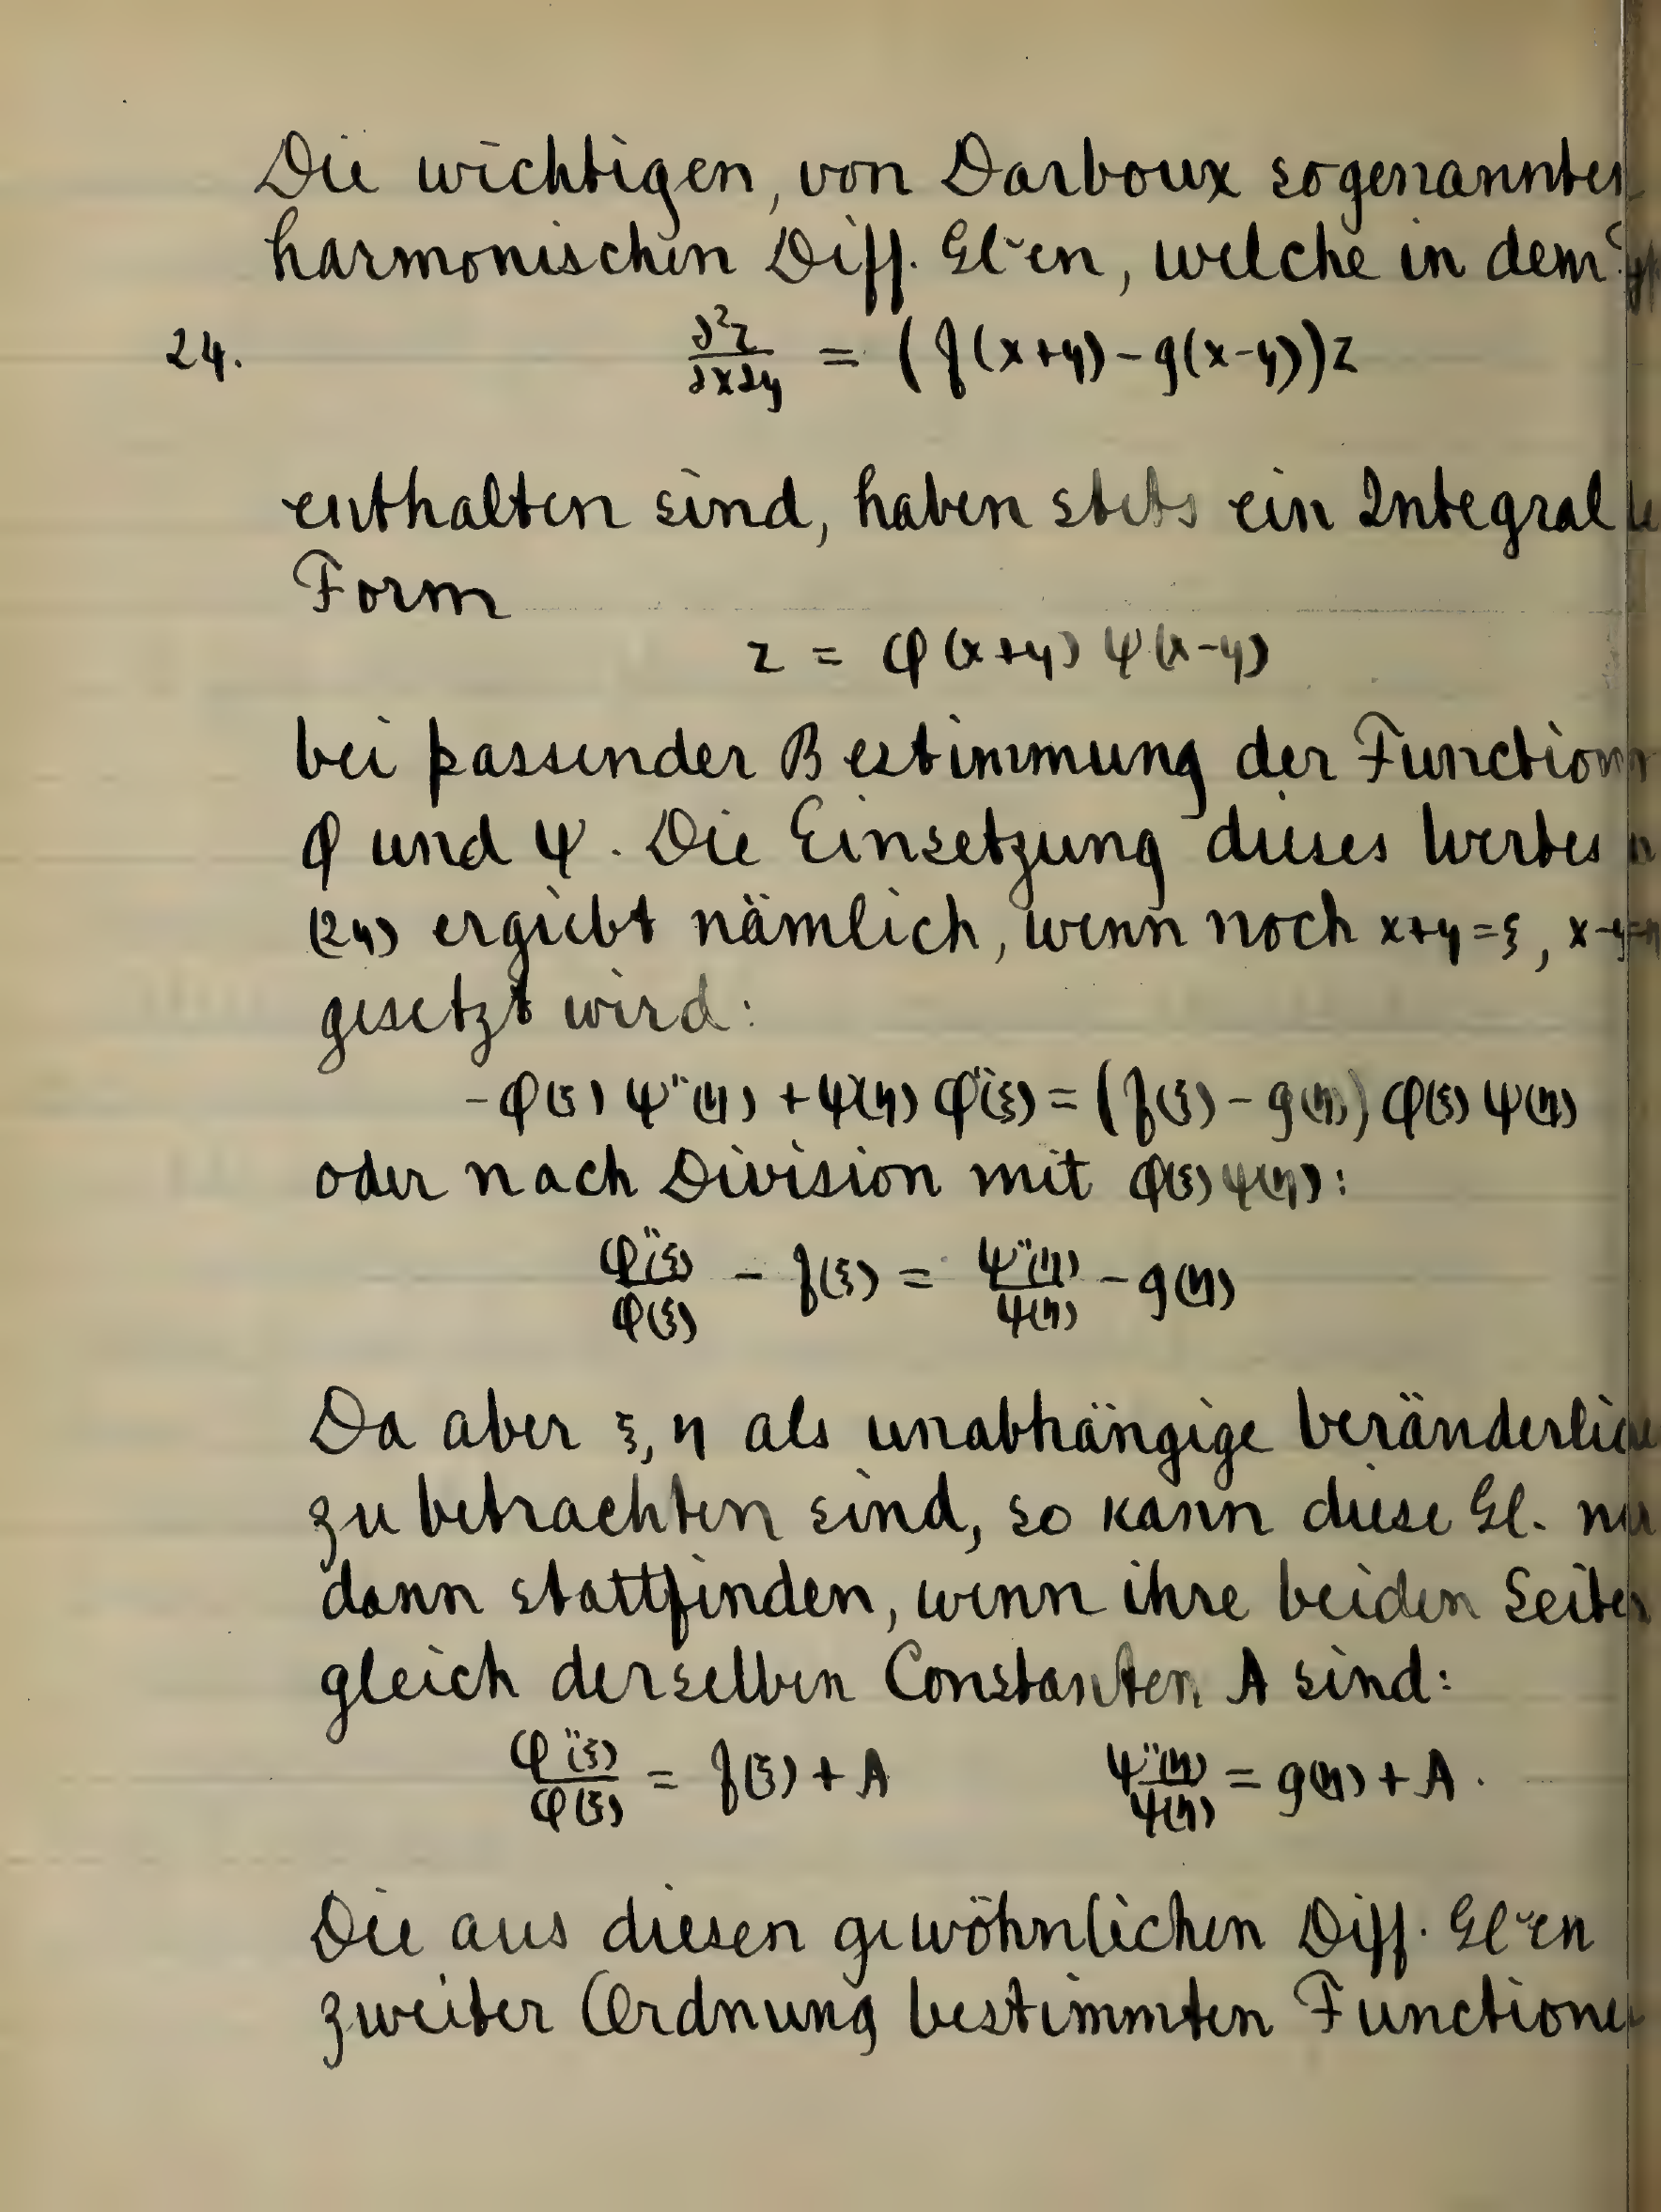 Die wichtigen, von Darboux sogenannten
harmonischen Diff. Gl~en, welche in dem
24. ∂²z/∂x∂y = (f(x+y) - g(x-y))z
enthalten sind, haben stets ein Integral
Form
z = φ(x+y) ψ(x-y)
bei passender Bestimmung der Function
φ und ψ. Die Einsetzung dieses Wertes
(24) ergiebt nämlich, wenn noch x+y=ξ, x-y=η
gesetzt wird:
-φ(ξ) ψ''(η) + ψ(η) φ''(ξ) = (f(ξ) - g(η)) φ(ξ) ψ(η)
oder nach Division mit φ(ξ) ψ(η):
φ''(ξ)/φ(ξ) - f(ξ) = ψ''(η)/ψ(η) - g(η)
Da aber ξ, η als unabhängige Veränderliche
zu betrachten sind, so kann diese Gl. nur
dann stattfinden, wenn ihre beiden Seiten
gleich derselben Constanten A sind:
φ''(ξ)/φ(ξ) = f(ξ) + A ψ''(η)/ψ(η) = g(η) + A.
Die aus diesen gewöhnlichen Diff. Gl~en
zweiter Ordnung bestimmten Functionen